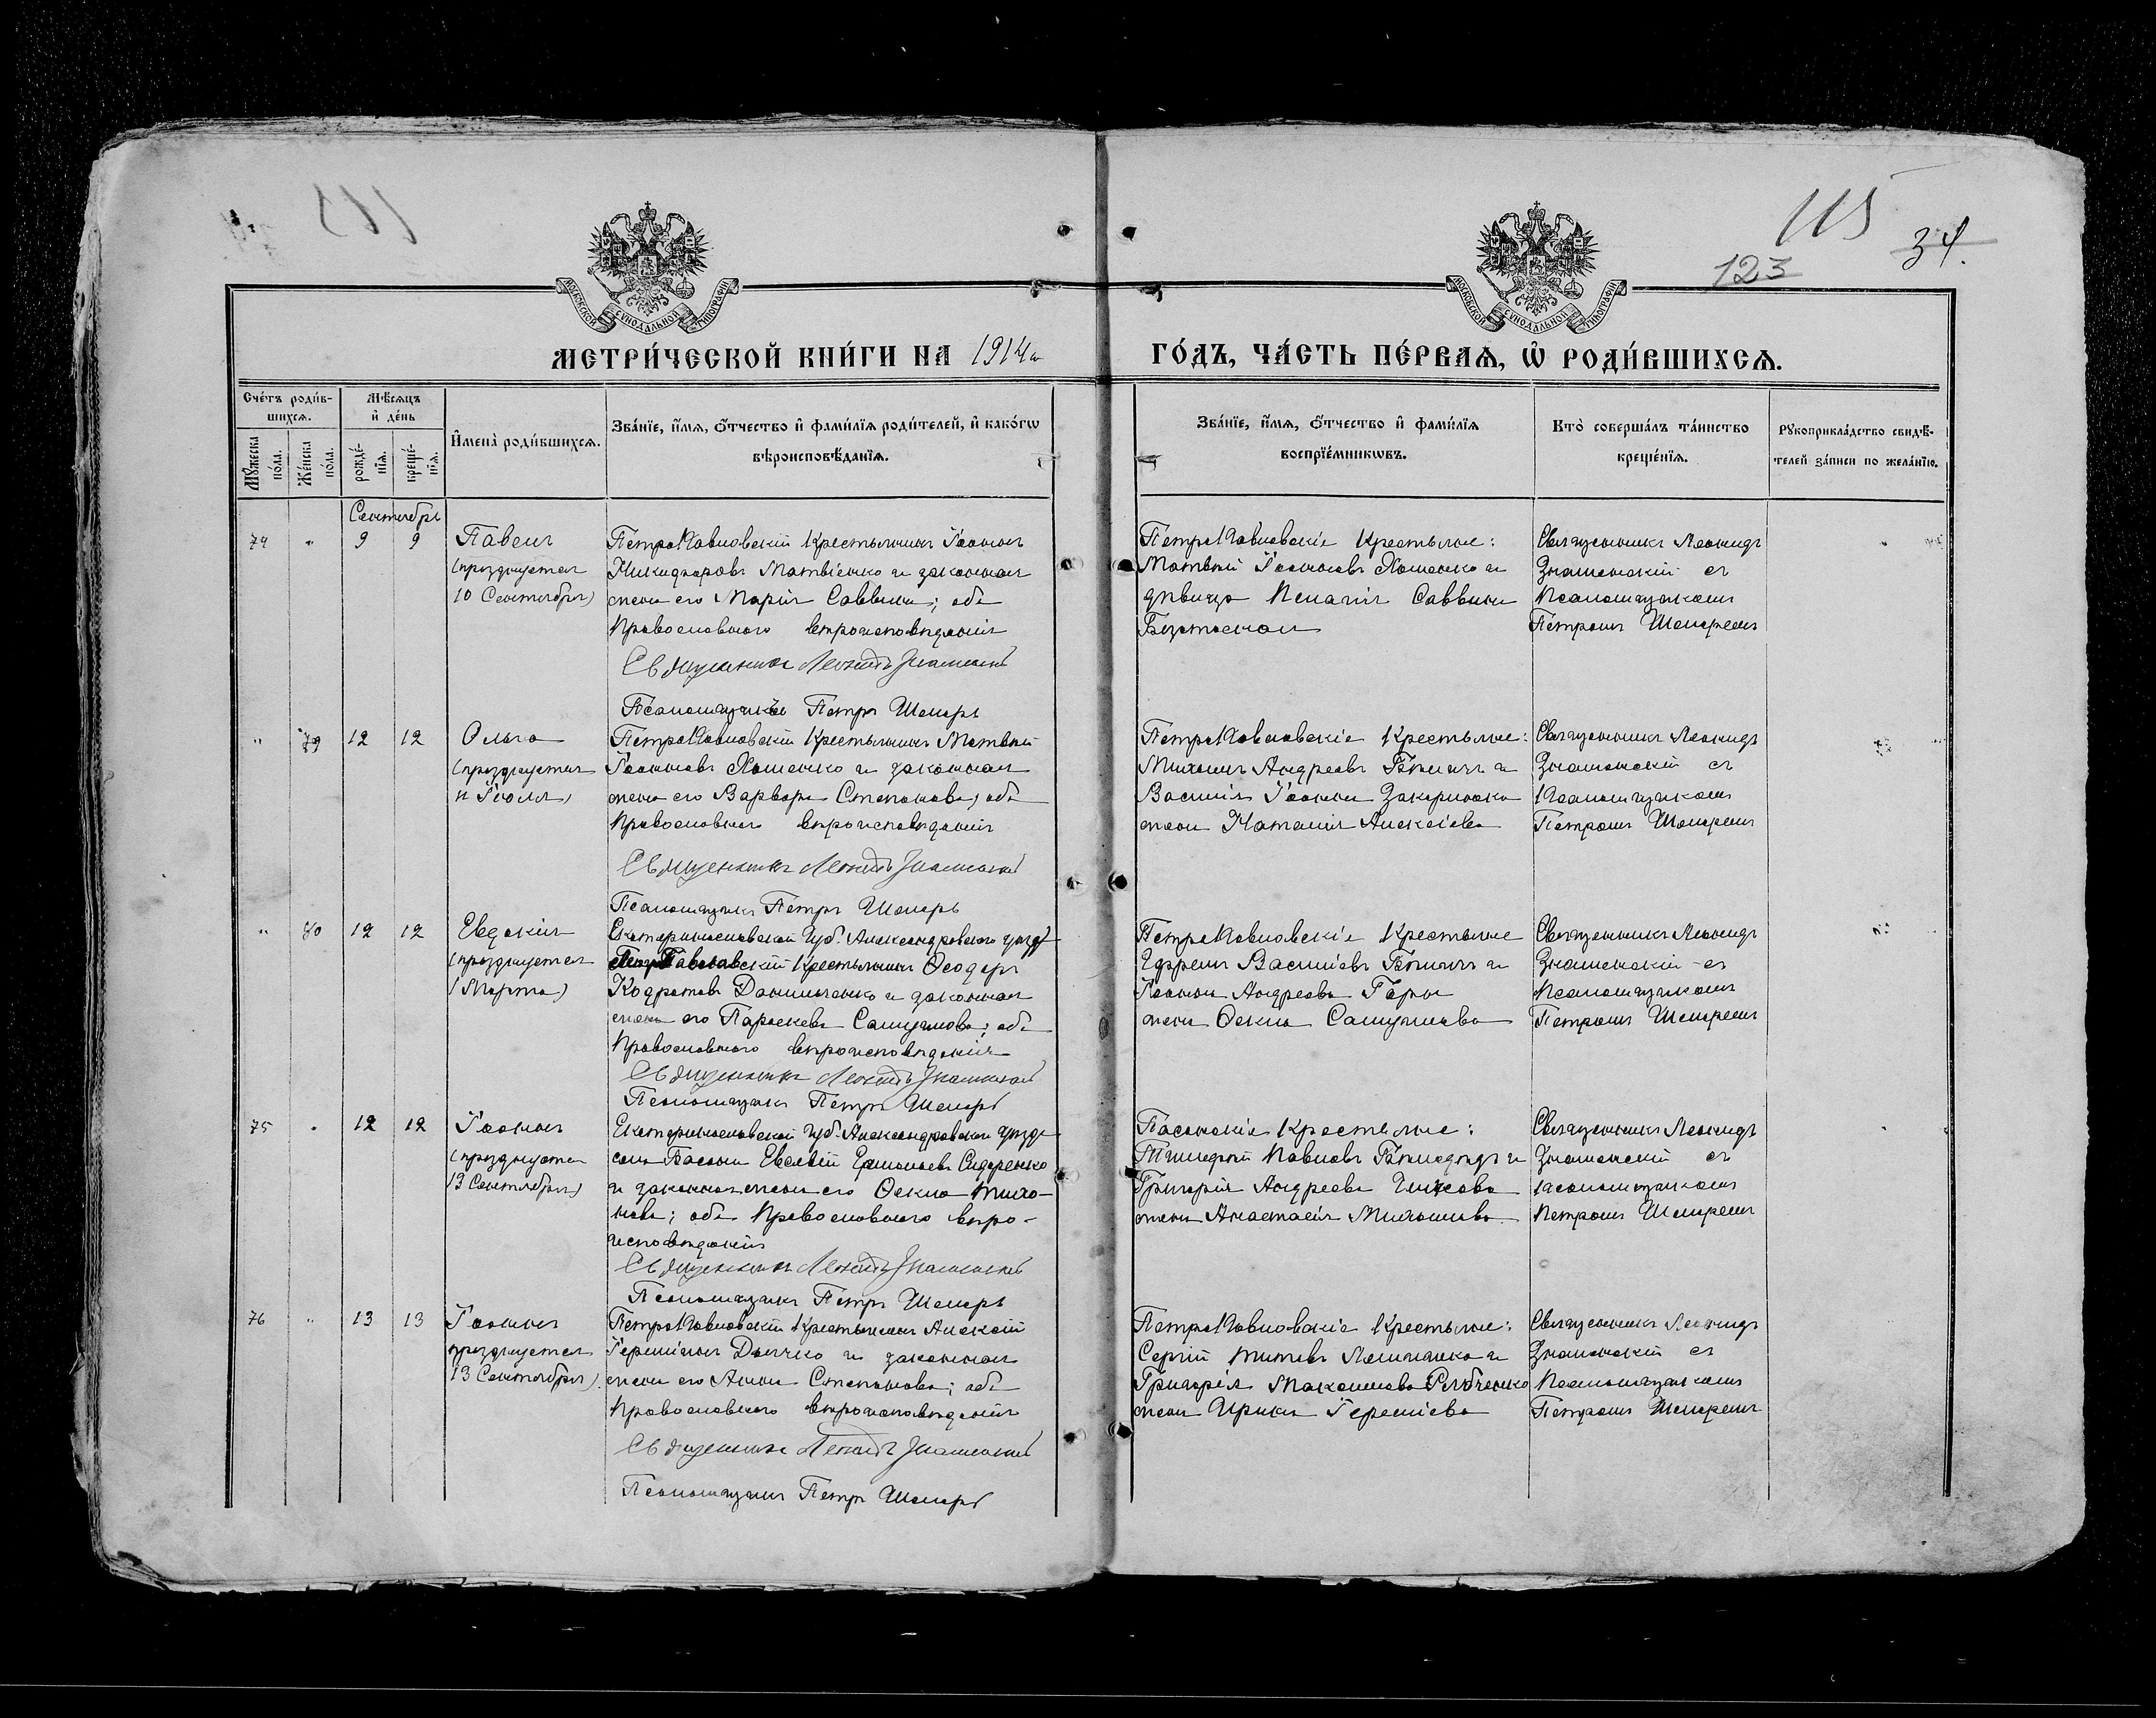 115
123
34.
МОСКОВСКОЙ СУНОДАЛЬНОЙ ТИПОГРАФІИ
МОСКОВСКОЙ СУНОДАЛЬНОЙ ТИПОГРАФІИ
МЕТРИ́ЧЕСКОЙ КНИ́ГИ НА 1914й
ГО́ДЪ, ЧА́СТЬ ПЕ́РВАѦ, Ѡ҆ РОДИ́ВШИХСѦ.
Сче́тъ роди́в-
шихсѧ.
Мѣ́сѧцъ
и҆ де́нь
Мꙋ́жеска
по́ла.
Же́нска
по́ла.
рожде́-
нїѧ.
креще́-
нїѧ.
И҆мена̀ роди́вшихсѧ.
Зва́нїе, и҆́мѧ, ѻ҆́тчество и҆ фами́лїѧ роди́телей, и҆ како́гѡ
вѣроисповѣ́данїѧ.
Зва́нїе, и҆́мѧ, ѻ҆́тчество и҆ фами́лїѧ
воспрїе́мникѡвъ.
Кто̀ соверша́лъ та́инство
креще́нїѧ.
Рꙋкоприкла́дство свидѣ́-
телей за́писи по жела́нїю.
Сентябрь
74 " 9 9
Павелъ
(празднуется
10 Сентября)
ПетроПавловскій Крестьянинъ Іоаннъ
Никифоровъ Матвіенко и законная
жена его Марія Саввина; оба
Православнаго вѣроисповѣданія
Священникъ Леонидъ Знаменскій
Псаломщикъ Петръ Шемеръ
ПетроПавловскіе Крестьяне:
Матвѣй Іоанновъ Хоменко и
дѣвица Пелагія Саввина
Священникъ Леонидъ
Знаменскій съ
Псаломщикомъ
Петромъ Шемеремъ
" 79 12 12
Ольга
(празднуется
11 Іюля)
ПетроПавловскій Крестьянинъ Матвѣй
Іоанновъ Хоменко и законная
жена его Варвара Степанова; оба
Православнаго вѣроисповѣданія
Священникъ Леонидъ Знаменскій
Псаломщикъ Петръ Шемеръ
ПетроПавловскіе Крестьяне:
Михаилъ Андреевъ и
Василія Іоаннова
жена Наталія Алексіева
Священникъ Леонидъ
Знаменскій съ
Псаломщикомъ
Петромъ Шемеремъ
" 80 12 12
Евдокія
(празднуется
1 Марта)
Екатеринославской Губ. Александровскаго уѣзда
ПетроПавловскій Крестьянинъ Ѳеодоръ
Кодратовъ Данильченко и законная
жена его Параскева Самуилова; оба
Православнаго вѣроисповѣданія
Священникъ Леонидъ Знаменскій
Псаломщикъ Петръ Шемеръ
ПетроПавловскіе Крестьяне
Ефремъ Василіевъ и
Іоанна Андреева
жена Ѳекла Самуилова
Священникъ Леонидъ
Знаменскій съ
Псаломщикомъ
Петромъ Шемеремъ
75 " 12 12
Іоаннъ
(празднуется
13 Сентября)
Екатеринославской Губ. Александровскаго уѣзда
села Басани Евсевій Сидоренко
и законная жена его Ѳекла Тихо-
нова; оба Православнаго вѣро-
исповѣданія
Священникъ Леонидъ Знаменскій
Псаломщикъ Петръ Шемеръ
Басанскіе Крестьяне:
Тимофей Павловъ и
Григорія Андреева
жена Анастасія Михаилова
Священникъ Леонидъ
Знаменскій съ
Псаломщикомъ
Петромъ Шемеремъ
76 " 13 13
Іоаннъ
празднуется
13 Сентября)
ПетроПавловскій Крестьянинъ Алексій
Іереміинъ Дьячко и законная
жена его Анна Степанова; оба
Православнаго вѣроисповѣданія
Священникъ Леонидъ Знаменскій
Псаломщикъ Петръ Шемеръ
ПетроПавловскіе Крестьяне:
Сергій Титовъ и
Григорія Максимова Рябченко
жена Ирина Іереміева
Священникъ Леонидъ
Знаменскій съ
Псаломщикомъ
Петромъ Шемеремъ